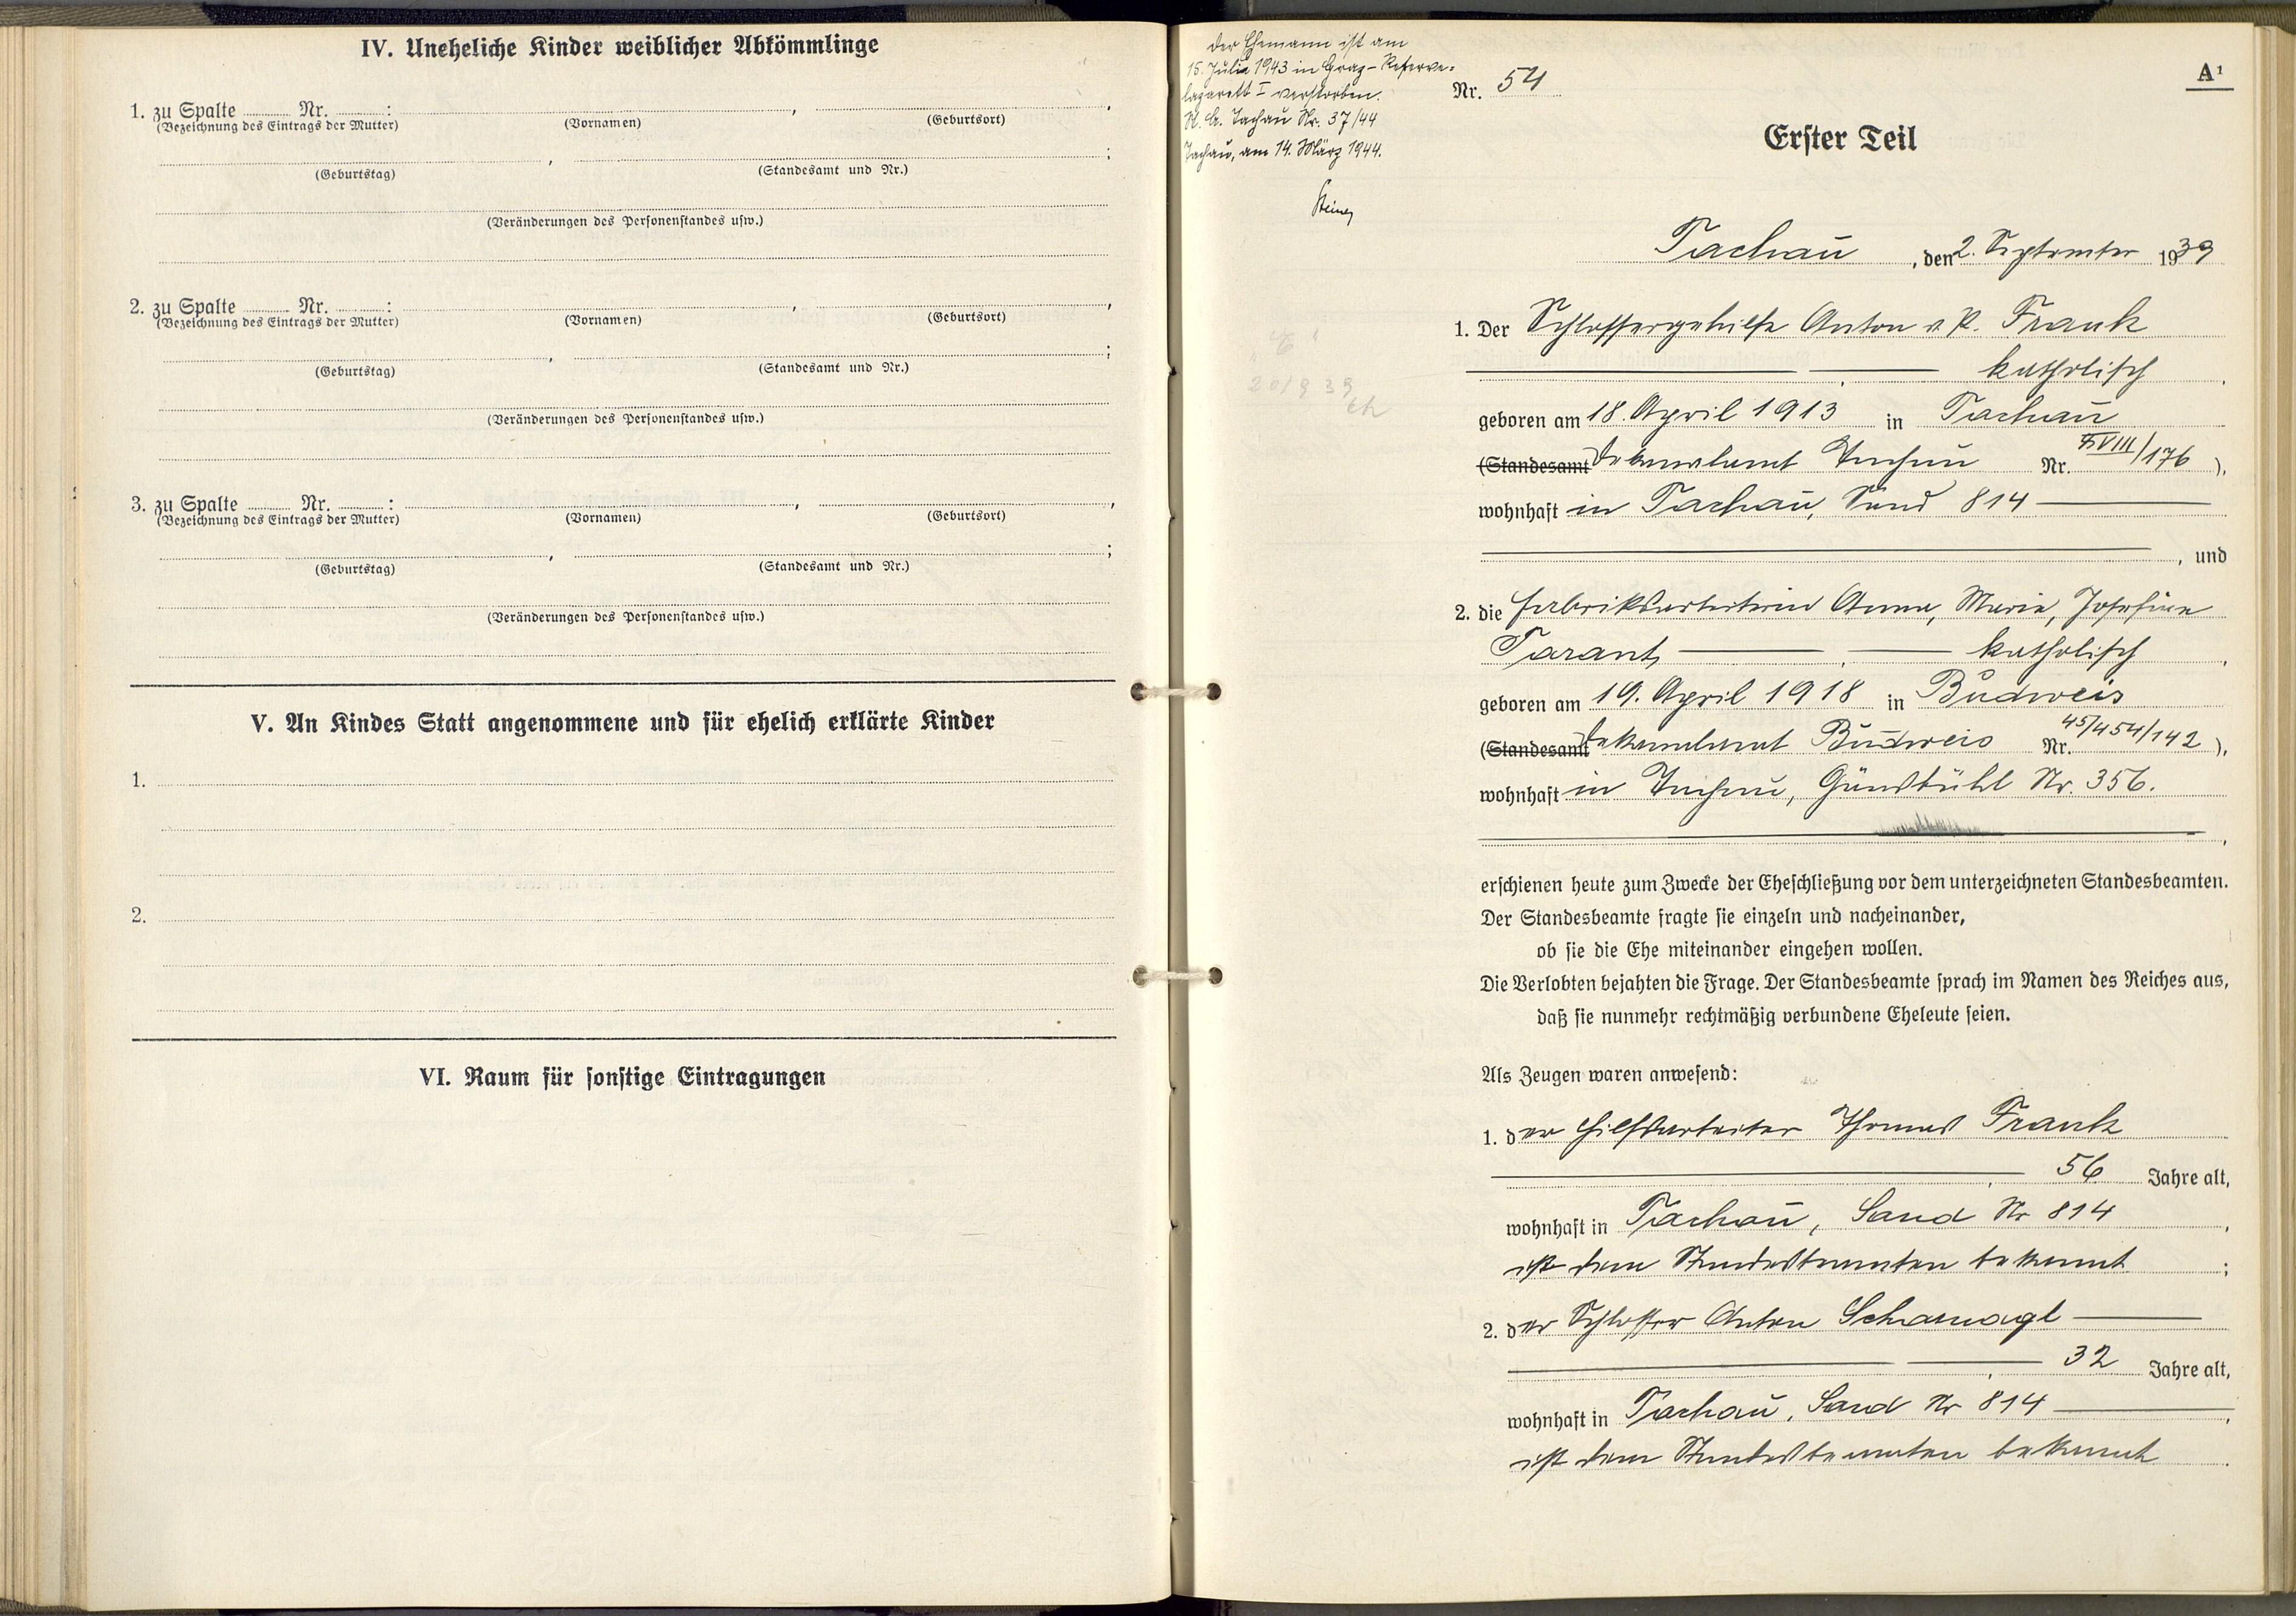 IV. Uneheliche Kinder weiblicher Abkömmlinge
1. zu Spalte ........ Nr. ........ : , ,
(Bezeichnung des Eintrags der Mutter) (Vornamen) (Geburtsort)
, ;
(Geburtstag) (Standesamt und Nr.)
(Veränderungen des Personenstandes usw.)
2. zu Spalte ........ Nr. ........ : , ,
(Bezeichnung des Eintrags der Mutter) (Vornamen) (Geburtsort)
, ;
(Geburtstag) (Standesamt und Nr.)
(Veränderungen des Personenstandes usw.)
3. zu Spalte ........ Nr. ........ : , ,
(Bezeichnung des Eintrags der Mutter) (Vornamen) (Geburtsort)
, ;
(Geburtstag) (Standesamt und Nr.)
(Veränderungen des Personenstandes usw.)
V. An Kindes Statt angenommene und für ehelich erklärte Kinder
1.
2.
VI. Raum für sonstige Eintragungen
Der Ehemann ist am
15. Juli 1943 in Graz-Reserve-
lazarett I verstorben.
St. A. Tachau Nr. 37/44
Tachau, am 14. März 1944.
Nr. 54
A1
Erster Teil
Tachau, den 2. September 1939
1. Der Schlossergehilfe Anton Frank
katholisch,
geboren am 18. April 1913 in Tachau
(Standesamt Dekanalamt Tachau Nr. XVIII/176),
wohnhaft in Tachau, Sand 814
, und
2. die Fabriksarbeiterin Anna, Maria, Josefine
Tarant, katholisch,
geboren am 19. April 1918 in Budweis
(Standesamt Dekanalamt Budweis Nr. 45/454/142),
wohnhaft in Tachau, Günsbühl Nr. 356.
erschienen heute zum Zwecke der Eheschließung vor dem unterzeichneten Standesbeamten.
Der Standesbeamte fragte sie einzeln und nacheinander,
ob sie die Ehe miteinander eingehen wollen.
Die Verlobten bejahten die Frage. Der Standesbeamte sprach im Namen des Reiches aus,
daß sie nunmehr rechtmäßig verbundene Eheleute seien.
Als Zeugen waren anwesend:
1. der Hilfsarbeiter Thomas Frank
56 Jahre alt,
wohnhaft in Tachau, Sand Nr 814,
ist dem Standesbeamten bekannt;
2. der Schlosser Anton Scharnagl
32 Jahre alt,
wohnhaft in Tachau, Sand Nr 814,
ist dem Standesbeamten bekannt.